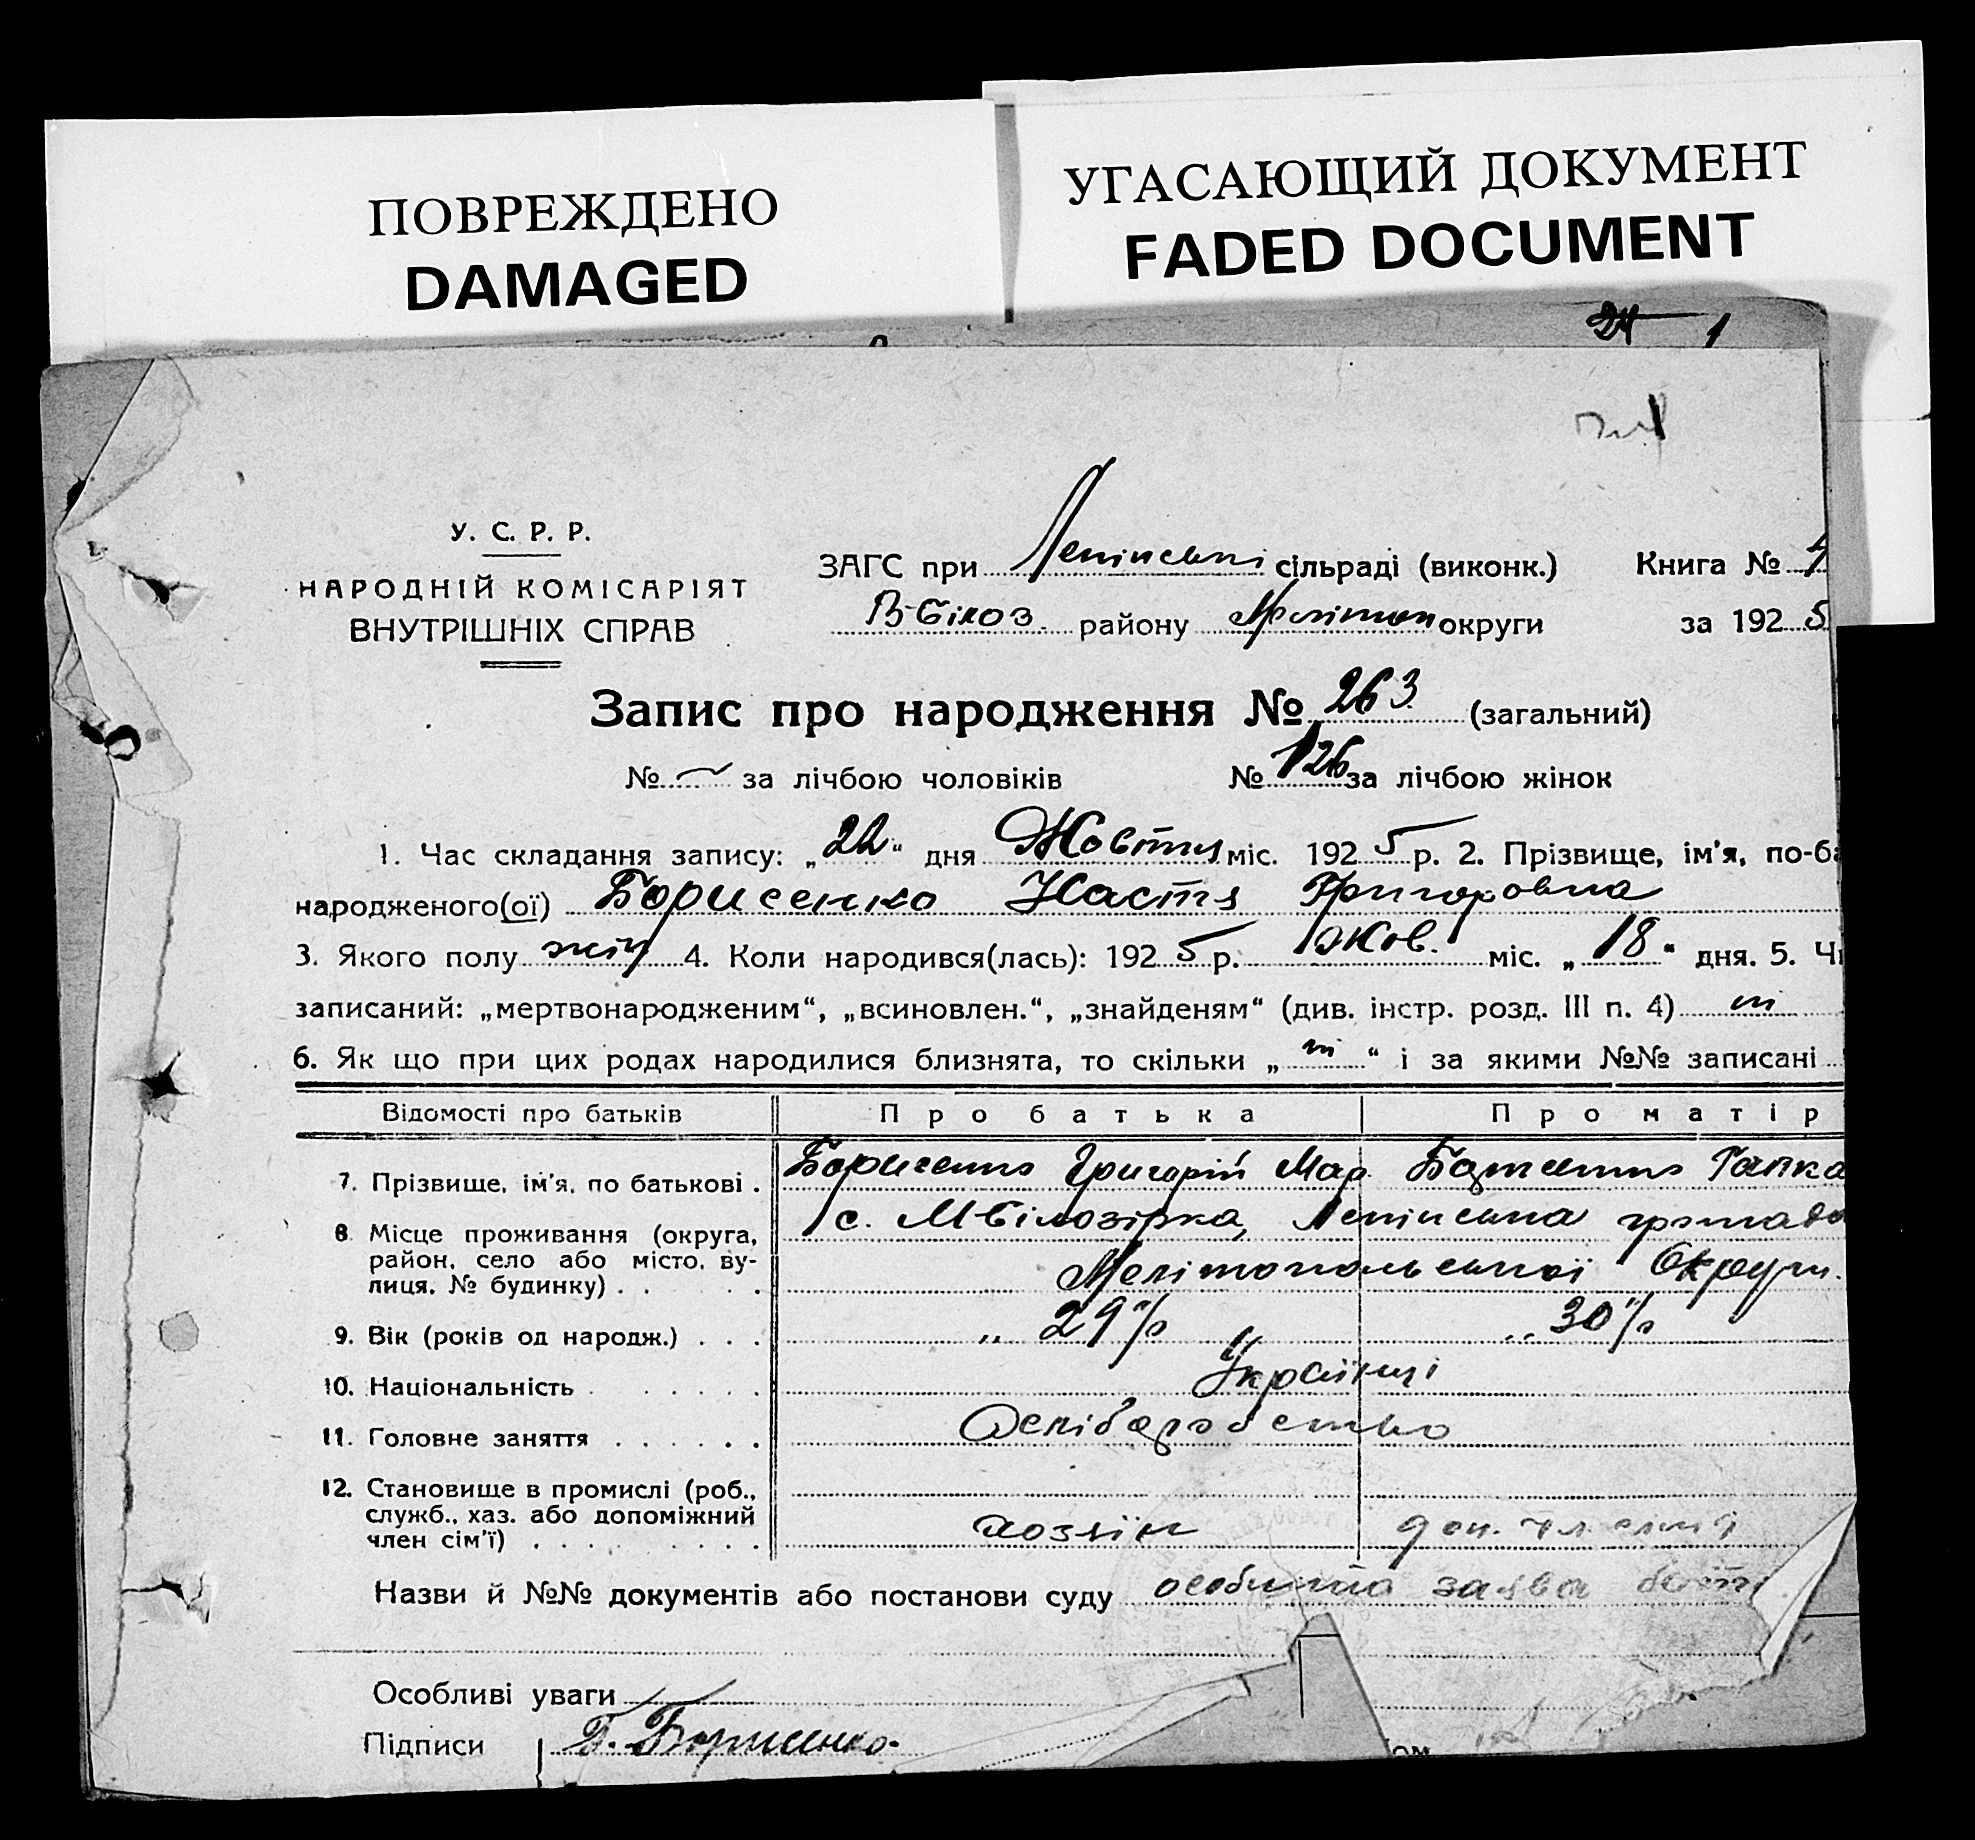 ПОВРЕЖДЕНО
DAMAGED
УГАСАЮЩИЙ ДОКУМЕНТ
FADED DOCUMENT
24 1
У. С. Р. Р.
НАРОДНІЙ КОМІСАРІЯТ
ВНУТРІШНІХ СПРАВ
ЗАГС при Ленінські сільраді (виконк.) Книга №
В-Білоз. району Мелітоп округи за 1925
Запис про народження № 263 (загальний)
№ — за лічбою чоловіків № 126 за лічбою жінок
1. Час складання запису: „22“ дня Жовтня міс. 1925 р. 2. Прізвище, ім'я, по-ба
народженого(ої) Борисенко Настя Григоровна
3. Якого полу жін 4. Коли народився(лась): 1925 р. Жов. міс. „18“ дня. 5. Чи
записаний: „мертвонародженим“, „всиновлен.“, „знайденям“ (див. інстр. розд. III п. 4) ні
6. Як що при цих родах народилися близнята, то скільки „ні“ і за якими №№ записані
Відомості про батьків Про батька Про матір
7. Прізвище, ім'я, по батькові . Борисенко Григорій Мар Гапка
8. Місце проживання (округа, район, село або місто, вулиця, № будинку) . . . . с. МБілозірка, Ленінська громада
Мелітопольської Округи.
9. Вік (років од народж.) . . . „ 29 „ 30
10. Національність . . . . . . Українці
11. Головне заняття . . . . . .
12. Становище в промислі (роб., служб., хаз. або допоміжний член сім'ї) . . . . . . . . . хозяїн доп. чл. сімї
Назви й №№ документів або постанови суду особиста заява
Особливі уваги
Підписи Г. Борисенко.